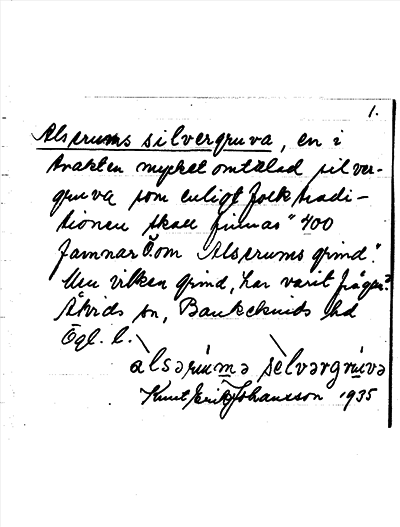 1.
Alsrums silvergruva, en i
trakten mycket omtalad silver-
gruva som enligt folktradi-
tionen skall finnas "400
famnar Ö. om Alsrums grind".
Men vilken grind, har varit frågan?
Åtvids sn, Bankekinds hd
Ögl. l.
Knut Erik Johansson 1935